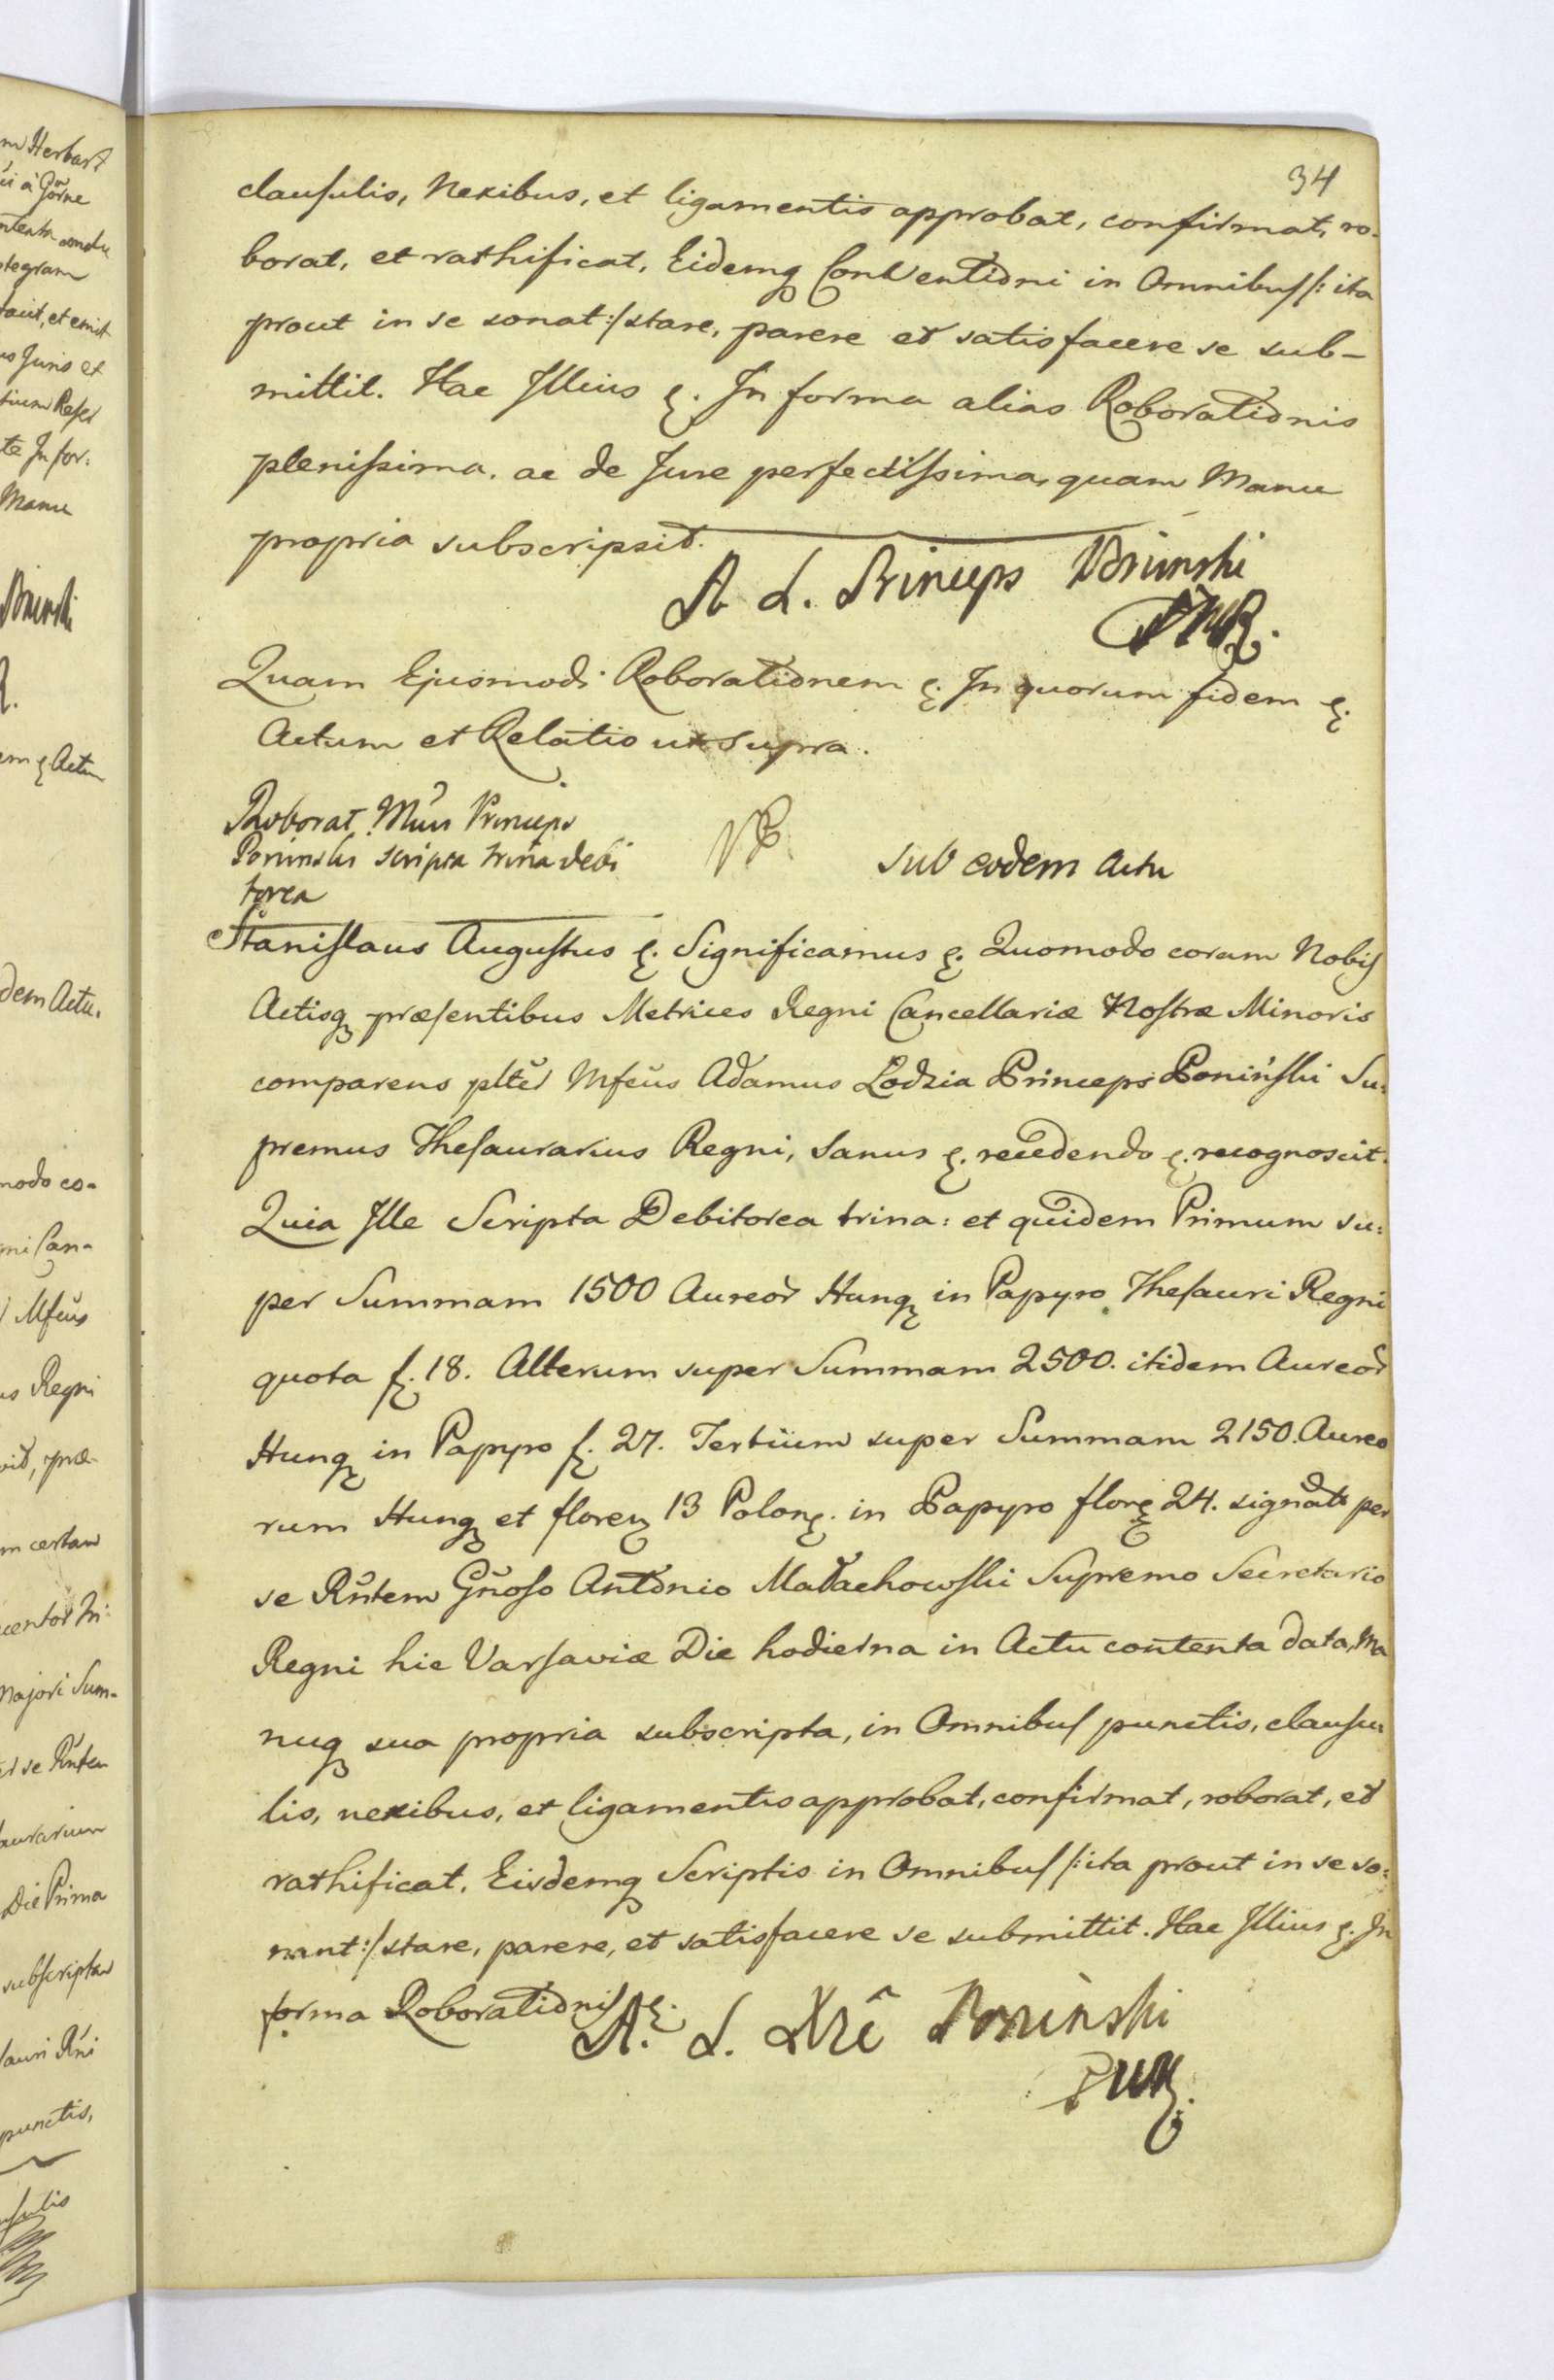 34
clausulis, Nexibus, et ligamentis approbat, confirmat, ro-
borat, et rathificat, Eidemq Conventioni in Omnibus /: ita
prout in se sonat :/ stare, parere et satisfacere se sub-
mittit. Hac Illius &. In forma alias Roborationis
plenissima, ac de Jure perfectissima, quam Manu
propria subscripsit.
A L. Princeps Poninski
Quam Ejusmodi Roborationem &. In quorum fidem &.
Actum et Relatio ut supra.
Roborat Mfus Princeps
Poninski scripta trina debi
torea
sub eodem Actu
Stanislaus Augustus &. Significamus &. Quomodo coram Nobis
Actisq præsentibus Metrices Regni Cancellariæ Nostræ Minoris
comparens plter Mfcus Adamus Lodzia Princeps Poniński Su:
premus Thesaurarius Regni, Sanus &. recedendo &. recognoscit.
Quia Ille Scripta Debitorea trina: et quidem Primum su:
per Summam 1500 Aureor Hung in Papyro Thesauri Regni
quota f. 18. Alterum super Summam 2500. itidem Aureor
Hung in Papyro f. 27. Tertium super Summam 2150. Aureo
rum Hung et floren 13 Polon. in Papyro flore 24. signat per
se Rntem Gnoso Antonio Małachowski Supremo Secretario
Regni hic Varsaviæ Die hodierna in Actu contenta data, Ma
nuq sua propria subscripta, in Omnibus punctis, clausu
lis, nexibus, et ligamentis approbat, confirmat, roborat, et
rathificat, Eisdemq Scriptis in Omnibus /: ita prout in se so:
nant :/ stare, parere, et satisfacere se submittit. Hac Illius &. In
forma Roborationis &.
A. L. Xżê Poninski